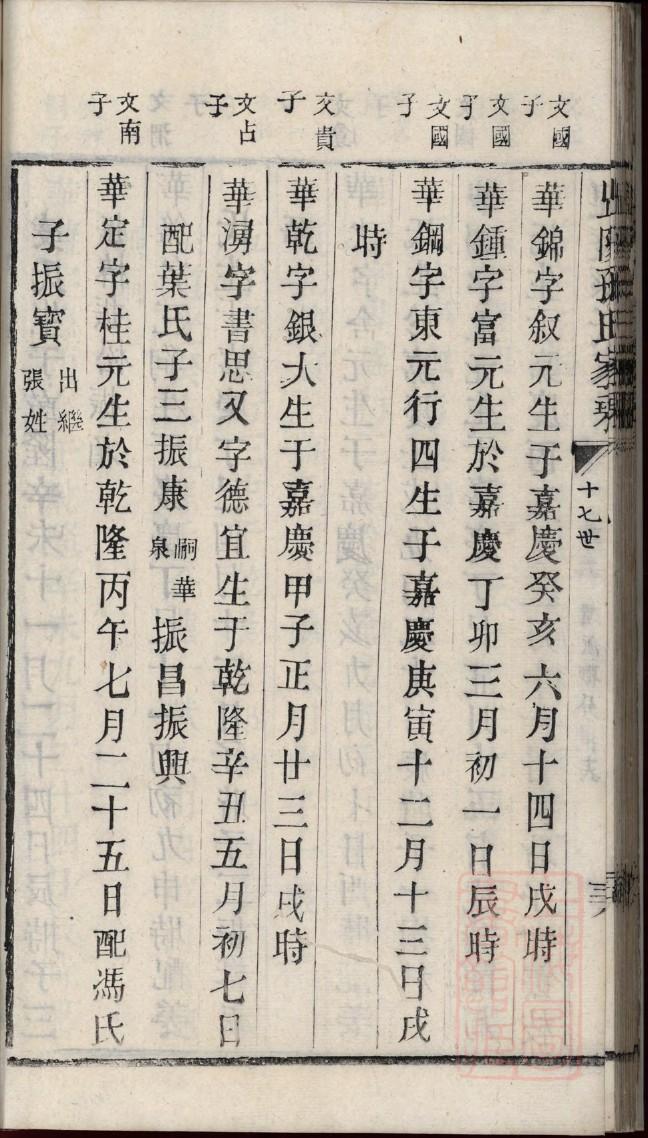 孫氏家乘
十七世
文國子
華錦字叙元生于嘉慶癸亥六月十四日戌時
文國子
華鍾字富元生於嘉慶丁卯三月初一日辰時
文國子
華鋼字東元行四生于嘉慶庚寅十二月十三日戌
時
文貴子
華乾字銀大生于嘉慶甲子正月廿三日戌時
文占子
華淜字書思又字德宜生于乾隆辛丑五月初七日
配葉氏子三振康嗣華泉振昌振興
文南子
華定字桂元生於乾隆丙午七月二十五日配馮氏
子振寶出繼張姓